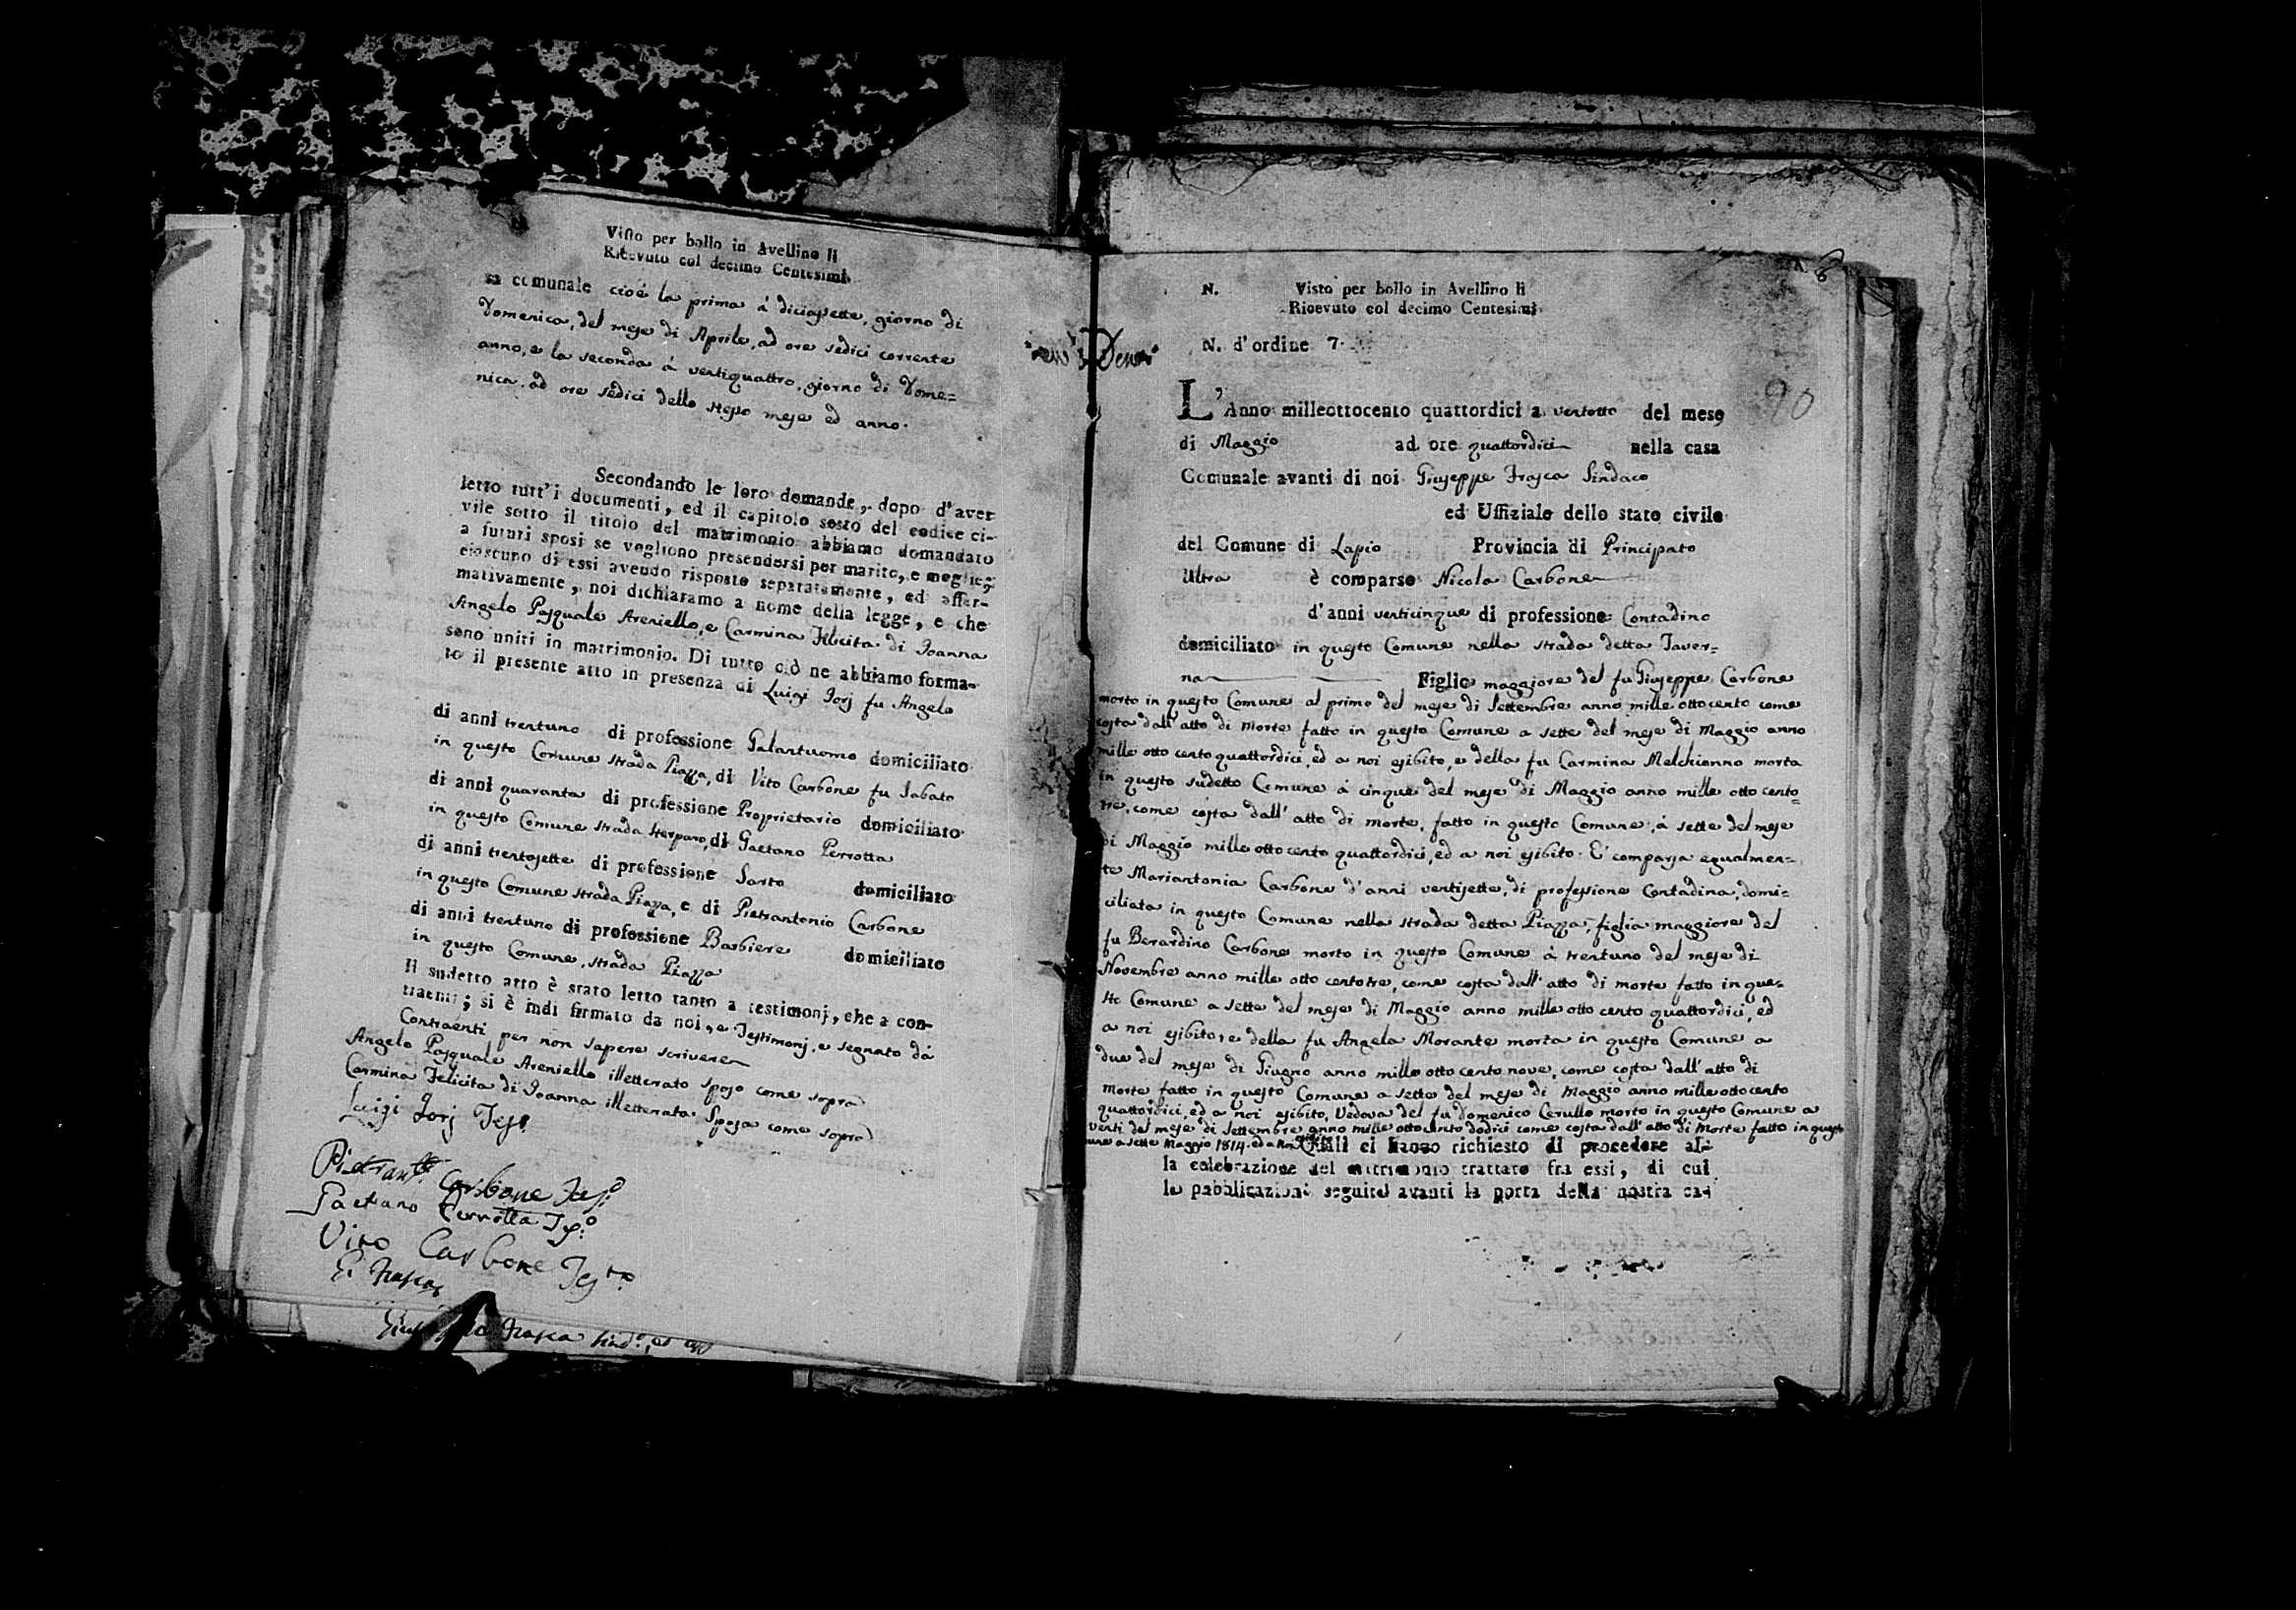 Visto per bollo in Avellino li
Ricevuto col decimo Centesimi
sa comunale cioè la prima à diciassette, giorno di
Domenica, del mese di Aprile, ad ore sedici corrente
anno, e la seconda à ventiquattro, giorno di Dome=
nica, ad ore sedici dello stesso mese ed anno.
Secondando le loro domande, dopo d'aver
letto tutt'i documenti, ed il capitolo sesto del codice ci-
vile sotto il titolo del matrimonio abbiamo domandato
a futuri sposi se vogliono presendersi per marito, e moglie;
ciascuno di essi avendo risposto separatamente, ed affer-
mativamente, noi dichiaramo a nome della legge, e che
Angelo Pasquale Areniello, e Carmina Felicita di Joanna
sono uniti in matrimonio. Di tutto ciò ne abbiamo forma-
to il presente atto in presenza di Luigi Jorj fu Angelo
di anni trentuno di professione Galantuomo domiciliato
in questo Comune strada Piazza, di Vito Carbone fu Sabato
di anni quaranta di professione Proprietario domiciliato
in questo Comune strada Sterparo, di Gaetano Perrotta
di anni trentasette di professione Sarto domiciliato
in questo Comune strada Piazza, e di Pietrantonio Carbone
di anni trentuno di professione Barbiere domiciliato
in questo Comune, strada Piazza
Il sudetto atto è stato letto tanto a testimonj, che a con-
traenti; si è indi firmato da noi, e Testimonj, e segnato dà
Contraenti per non sapere scrivere
Angelo Pasquale Areniello illetterato Sposo come sopra
Carmina Felicita di Joanna illetterata Sposa come sopra
Luigi Jorj Tes.º
Pietrant.º Carbone Tes.º
Gaetano Perrotta Tes.º
Vito Carbone Tes.to
G. Frasca
Frasca Sind.º
N. Visto per bollo in Avellino li
Ricevuto col decimo Centesimi
N. d'ordine 7.
90
L'Anno milleottocento quattordici a ventotto del mese
di Maggio ad ore quattordici nella casa
Comunale avanti di noi Giuseppe Frasca Sindaco
ed Uffiziale dello stato civile
del Comune di Lapio Provincia di Principato
Ultra è comparso Nicola Carbone
d'anni venticinque di professione Contadino
domiciliato in questo Comune nella strada detta Taver=
na Figlio maggiore del fu Giuseppe Carbone
morto in questo Comune al primo del mese di Settembre anno mille ottocento come
costa dall'atto di morte fatto in questo Comune a sette del mese di Maggio anno
mille otto cento quattordici, ed a noi esibito, e della fu Carmina Melchionno morta
in questo sudetto Comune à cinque del mese di Maggio anno mille otto cento=
tre, come costa dall'atto di morte, fatto in questo Comune, à sette del mese
di Maggio mille otto cento quattordici, ed a noi esibito. E' comparsa egualmen=
te Mariantonia Carbone d'anni ventisette, di professione Contadina, domi=
ciliata in questo Comune nella strada detta Piazza, figlia maggiore del
fu Berardino Carbone morto in questo Comune à trentuno del mese di
Novembre anno mille otto centotre, come costa dall'atto di morte fatto in que=
sto Comune a sette del mese di Maggio anno mille otto cento quattordici, ed
a noi esibito, e della fu Angela Morante morta in questo Comune a
due del mese di Giugno anno mille otto cento nove, come costa dall'atto di
morte fatto in questo Comune a sette del mese di Maggio anno mille otto cento
quattordici, ed a noi esibito, Vedova del fu Domenico Cerullo morto in questo Comune a
venti del mese di Settembre anno mille ottocento dodici come costa dall'atto di Morte fatto in questo
Comune a sette Maggio 1814. ed a noi Quali ci hanno richiesto di procedere al-
la celebrazione del matrimonio trattato fra essi, di cui
le pubblicazioni seguite avanti la porta della nostra ca-